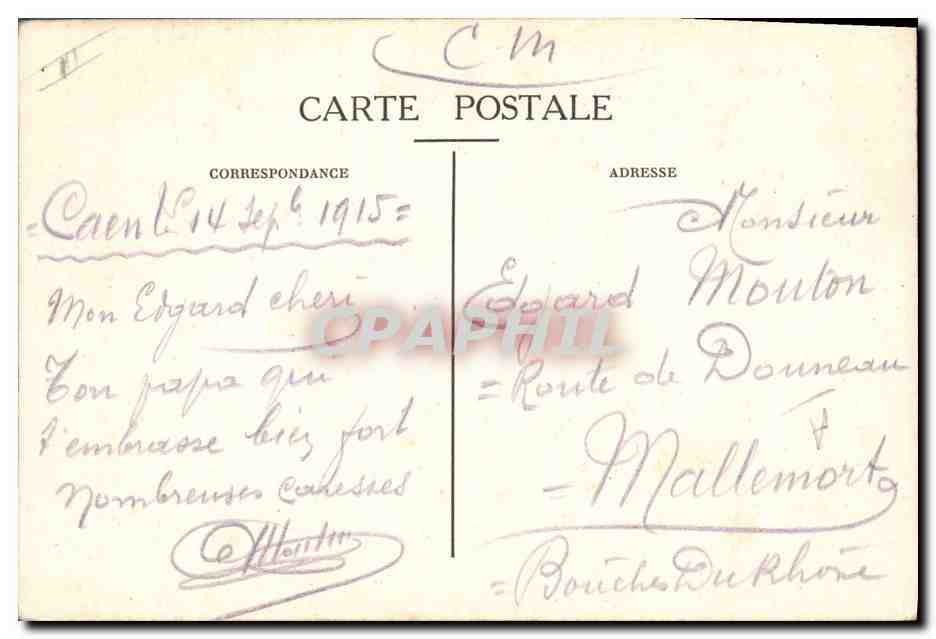 C M
CARTE POSTALE
CORRESPONDANCE
= Caen le 14 Sepbe 1915 =
Mon Edgard cheri
Ton papa qui
t'embrasse bien fort
Nombreuses caresses
Mouton
ADRESSE
Monsieur
Edgard Mouton
= Route de Douneau
= Mallemort
= Bouches Du Rhône
CPAPHIL